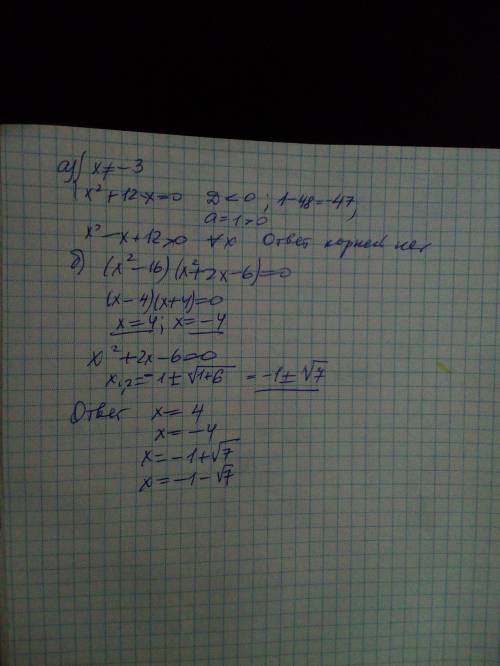 а) { x ≠ -3
x² + 12 - x = 0 D < 0 ; 1 - 48 = -47,
a = 1 > 0
x² - x + 12 > 0 ∀x Ответ корней нет
б) (x² - 16)(x² + 2x - 6) = 0
(x - 4)(x + 4) = 0
x = 4 ; x = -4
x² + 2x - 6 = 0
x₁,₂ = -1 ± √1+6 = -1 ± √7
Ответ x = 4
x = -4
x = -1 + √7
x = -1 - √7